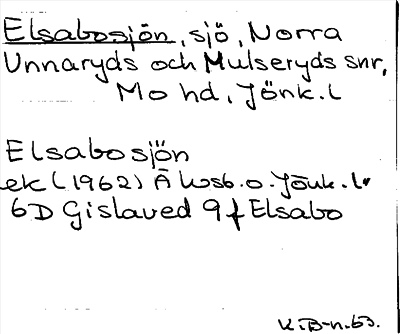 Elsabosjön, sjö, Norra
Unnaryds och Mulseryds snr,
Mo hd, Jönk. l
Elsabosjön
ek (1962) Ä lvsb. o. Jönk. l.
6D Gislaved 9f Elsabo
K.B-n. 63.